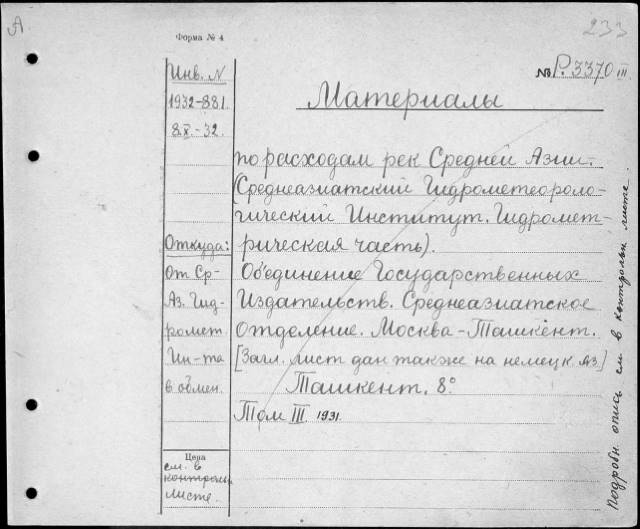 А
233
Форма № 4
№ Р.3370 III
Инв. N
1932-881.
8 X - 32.
Материалы
по расходам рек Средней Азии.
(Среднеазиатский Гидрометеороло-
гический Институт. Гидромет-
рическая часть).
Откуда:
От Ср-
Аз. Гид-
ромет.
Ин-та
в обмен.
Объединение Государственных
Издательств. Среднеазиатское
Отделение. Москва-Ташкент.
[Загл. лист дан также на немецк. яз.]
Ташкент. 8°
Том III. 1931.
Цена
см. в
контрольн.
листе.
Подробн. опись см. в контрольн. листе.